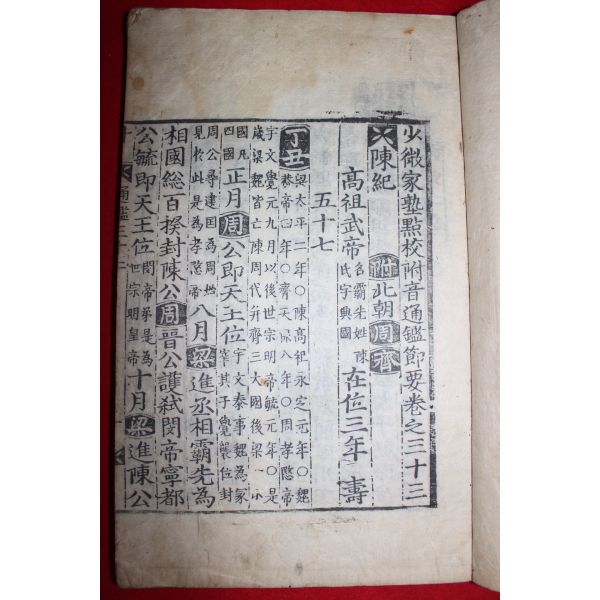 少微家塾點校附音通鑑節要卷之三十三
陳紀 附 北朝 周 齊
高祖武帝 名霸先姓陳氏字興國 在位三年 壽
五十七
丁丑 梁太平二年○陳高祖永定元年○魏恭帝四年○齊天保八年○周孝愍帝
宇文覺元九月以後世宗明帝毓元年○是歲梁魏皆亡陳周代并齊三大國後梁一小
國凡四國 正月 周 公即天王位 宇文泰事魏為冢宰其子覺襲位封
周公尋建國為周始見於此是為孝愍帝 八月 梁 進丞相霸先為
相國總百揆封陳公 周 晉公護弑閔帝寧都
公毓即天王位 閔帝弟是為世宗明皇帝 十月 梁 進陳公
通鑑三十三